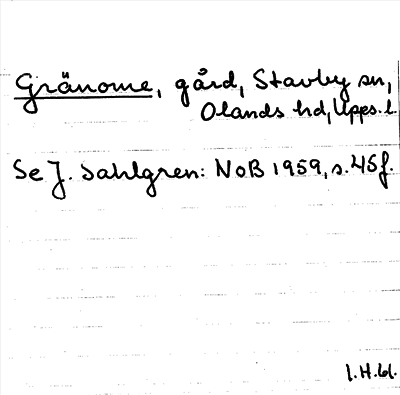 Gränome, gård, Stavby sn,
Olands hd, Upps. l.
Se J. Sahlgren: NoB 1959, s. 45f.